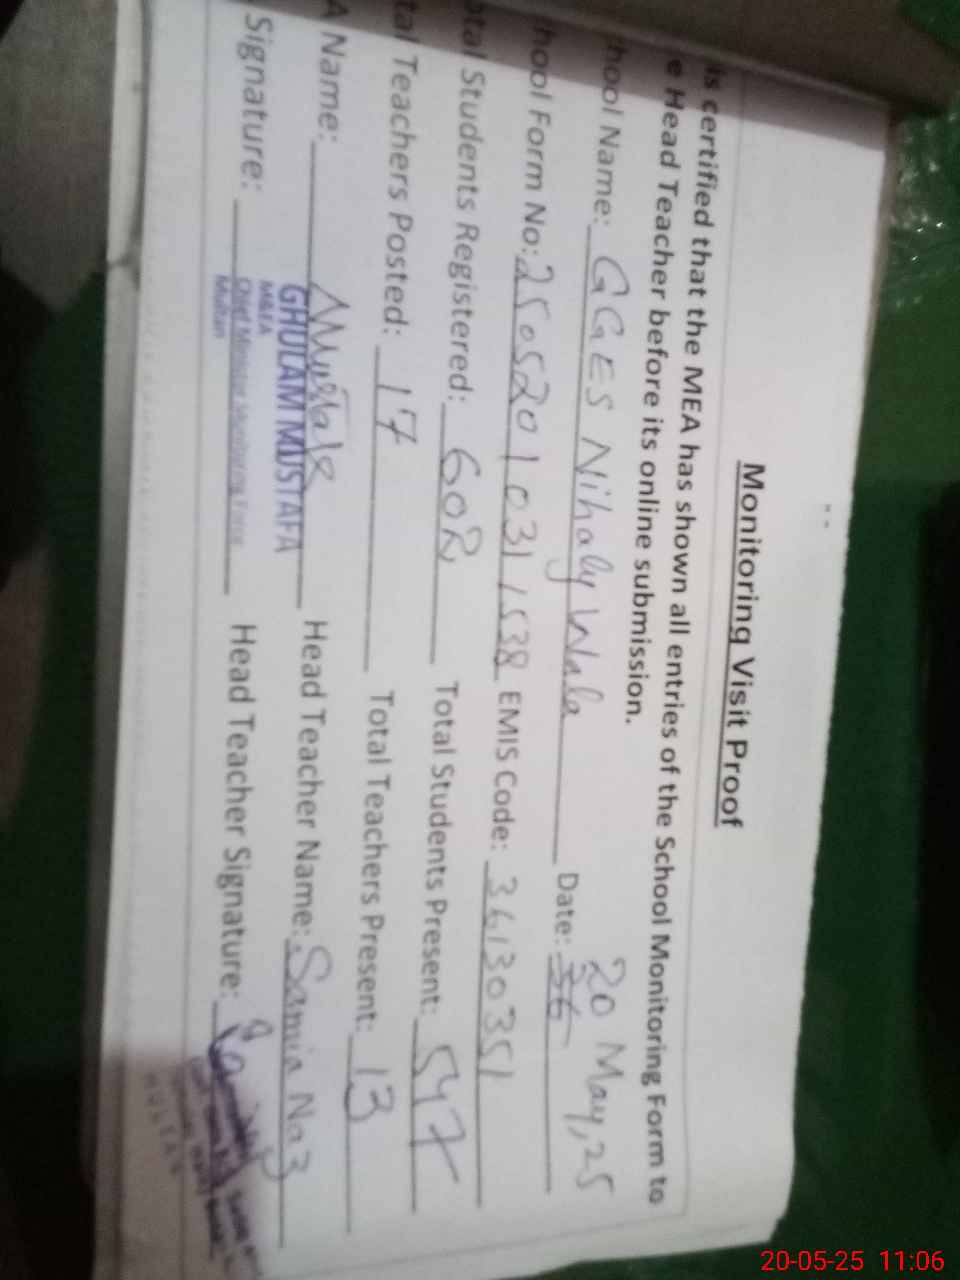 Monitoring Visit Proof
is certified that the MEA has shown all entries of the School Monitoring Form to
e Head Teacher before its online submission.
hool Name: GGES Nihaly Wala Date: 36 20 May, 25
hool Form No: 2505201031538 EMIS Code: 36130351
otal Students Registered: 602 Total Students Present: 547
tal Teachers Posted: 17 Total Teachers Present: 13
A Name: GHULAM MUSTAFA Head Teacher Name: Samia Naz
M&EA
Signature: Chief Minister Monitoring Force Head Teacher Signature:
Multan
20-05-25 11:06